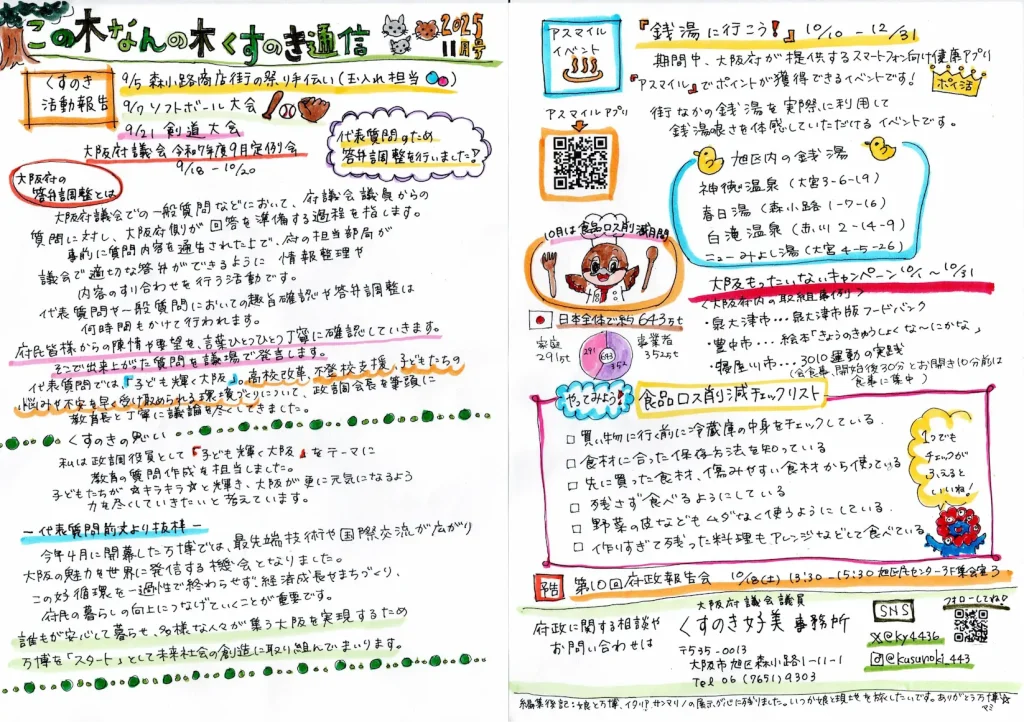 この木なんの木くすのき通信
2025
11月号
くすのき
活動報告
9/5 森小路商店街の祭り手伝い(玉入れ担当)
9/7 ソフトボール大会
9/21 創道大会
大阪府議会 令和7年度9月定例会
9/18 - 10/20
代表質問のため
答弁調整を行いました!
大阪府の
答弁調整とは
大阪府議会での一般質問などにおいて、府議会議員からの
質問に対し、大阪府側が回答を準備する過程を指します。
事前に質問内容を通告された上で、府の担当部局が
議会で適切な答弁ができるように 情報整理や
内容のすり合わせを行う活動です。
代表質問や一般質問においての趣旨確認や答弁調整は
何時間もかけて行われます。
府民皆様からの陳情や要望を、言葉ひとつひとつ丁寧に確認していきます。
そこで出来上がった質問を議場で発言します。
代表質問では、「子ども輝く大阪」。高校改革、不登校支援、子どもたちの
悩みや不安を早く受け止められる環境づくりについて、政調会長を筆頭に
教育長と丁寧に議論を尽くしてきました。
くすのきの思い
私は政調役員として『子ども輝く大阪』をテーマに
教育の質問作成を担当しました。
子どもたちが☆キラキラ☆と輝き、大阪が更に元気になるよう
力を尽くしていきたいと考えています。
－代表質問前文より抜粋－
今年4月に開幕した万博では、最先端技術や国際交流が広がり
大阪の魅力を世界に発信する機会となりました。
この好循環を一過性で終わらせず経済成長やまちづくり、
府民の暮らしの向上につなげていくことが重要です。
誰もが安心して暮らせ、多様な人々が集う大阪を実現するため
万博を「スタート」として未来社会の創造に取り組んでまいります。
アスマイル
イベント
『銭湯に行こう!』10/10 - 12/31
期間中、大阪府が提供するスマートフォン向け健康アプリ
『アスマイル』でポイントが獲得できるイベントです!
ポイ活
アスマイルアプリ
街なかの銭湯を実際に利用して
銭湯の良さを体感していただけるイベントです。
旭区内の銭湯
神徳温泉 (大宮3-6-19)
春日湯 (森小路1-7-16)
白滝温泉 (赤川2-14-9)
ニューみよし湯 (大宮4-5-26)
10月は食品ロス削減月間
大阪もったいないキャンペーン10/1～10/31
〈大阪府内の取組事例〉
・泉大津市…泉大津市版フードバンク
・豊中市…絵本「きょうのきゅうしょくな～にかな」
・寝屋川市…3010運動の実践
(会食事、開始後30分とお開き10分前は
食事に集中)
日本全体で約643万t
家庭
291万t
291
643
352
事業者
352万t
やってみよう!
食品ロス削減チェックリスト
□ 買い物に行く前に冷蔵庫の中身をチェックしている.
□ 食材に合った保存方法を知っている
□ 先に買った食材、傷みやすい食材から使っている
□ 残さず食べるようにしている
□ 野菜の皮などもムダなく使うようにしている.
□ 作りすぎて残った料理もアレンジなどして食べている
1つでも
チェックが
ふえると
いいね!
予告
第10回府政報告会 10/18(土) 13:30-15:30 旭区民センター3F集会室3
府政に関する相談や
お問い合わせは
大阪府議会議員
くすのき好美 事務所
〒535-0013
大阪市旭区森小路1-11-1
Tel 06 (7651) 9303
SNS
フォローしてね♡
X@ky4436
@kusunoki_443
編集後記:娘と万博、イタリア、サンマリノの展示が心に残りました。いつか娘と現地を旅したいです。ありがとう万博☆